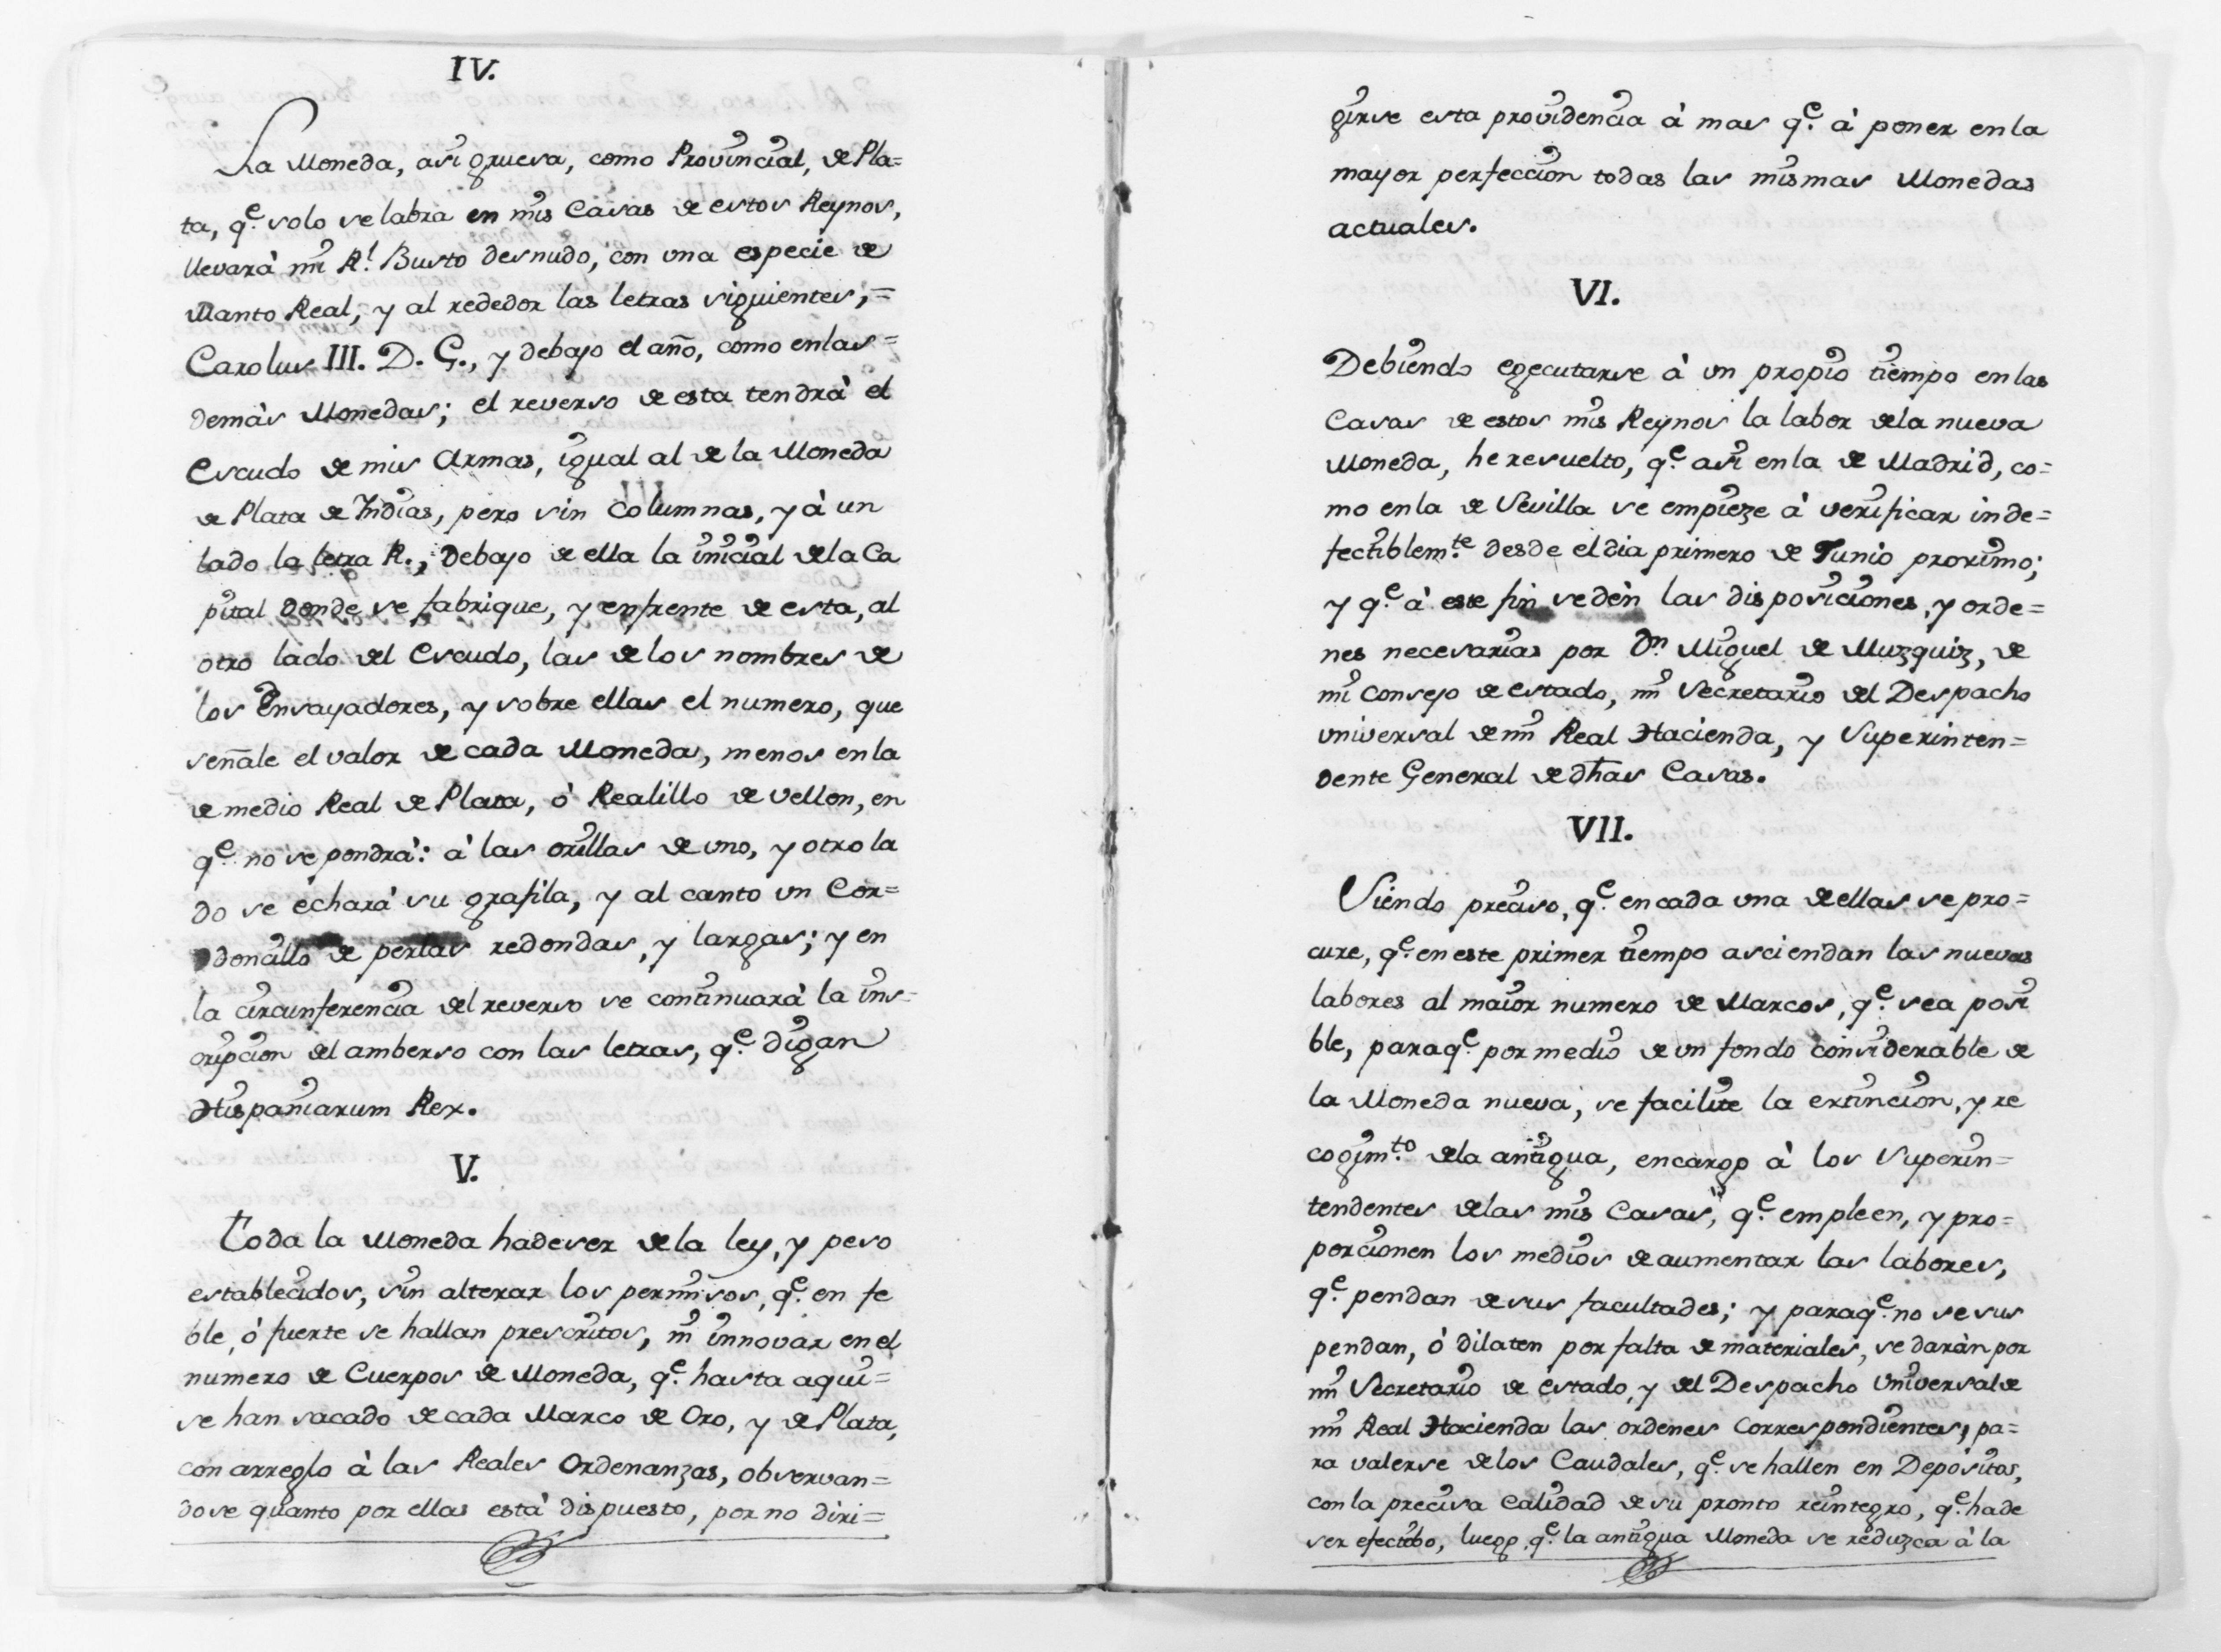 IV.
La Moneda, asi gruesa, como Provincial, de Pla=
ta, q.e solo se labra en mis Casas de estos Reynos,
llevará mi R.l Busto desnudo, con una especie de
Manto Real, y al rededor las letras siguientes,=
Carolus III. D. G., y debajo el año, como enlas=
demàs Monedas; el reverso de esta tendrà el
Escudo de mis Armas, igual al de la Moneda
de Plata de Indias, pero sin Columnas, y à un
lado la letra R., debajo de ella la inicial dela Ca
pital donde se fabrique, y enfrente de esta, al
otro lado del Escudo, las delos nombres de
los Ensayadores, y sobre ellas el numero, que
señale el valor de cada Moneda, menos en la
de medio Real de Plata, ò Realillo de vellon, en
q.e no se pondrà: à las orillas de uno, y otro la
do se echarà su grafila, y al canto un Cor=
doncillo de perlas redondas, y largas; y en
la circunferencia del reverso se continuarà la ins=
cripcion del amberso con las letras, q.e digan
Hispaniarum Rex.
V.
Toda la Moneda hadeser de la ley, y peso
establecidos, sin alterar los permisos, q.e en fe
ble, ò fuerte se hallan prescritos, ni innovar en el
numero de Cuerpos de Moneda, q.e hasta aqui=
se han sacado de cada Marco de Oro, y de Plata,
con arreglo à las Reales Ordenanzas, observan=
dose quanto por ellas està dispuesto, por no diri=
girse esta providencia à mas q.e à poner en la
mayor perfeccion todas las mismas Monedas
actuales.
VI.
Debiendo egecutarse à un propio tiempo en las
Casas de estos mis Reynos la labor dela nueva
Moneda, he resuelto, q.e asi en la de Madrid, co=
mo en la de Sevilla se empieze à verificar inde=
fectiblem.te desde el dia primero de Junio proximo;
y q.e à este fin se dèn las disposiciones, y orde=
nes necesarias por Dn Miguel de Muzquiz, de
mi Consejo de estado, mi Secretario del Despacho
universal de mi Real Hacienda, y Superinten=
dente General de dhas Casas.
VII.
Siendo preciso, q.e en cada una de ellas se pro=
cure, q.e en este primer tiempo asciendan las nuevas
labores al maior numero de Marcos, q.e sea posi
ble, paraq.e por medio de un fondo considerable de
la Moneda nueva, se facilite la extincion, y re
cogim.to dela antigua, encargo à los Superin=
tendentes delas mis Casas, q.e empleen, y pro=
porcionen los medios de aumentar las labores,
q.e pendan de sus facultades; y paraq.e no se sus
pendan, ò dilaten por falta de materiales, se daràn por
mi Secretario de Estado, y del Despacho Universal de
mi Real Hacienda las ordenes correspondientes, pa=
ra valerse delos Caudales, q.e se hallen en Depòsitos,
con la precisa calidad de su pronto reintegro, q.e hade
ser efectibo, luego q.e la antigua Moneda se reduzca à la